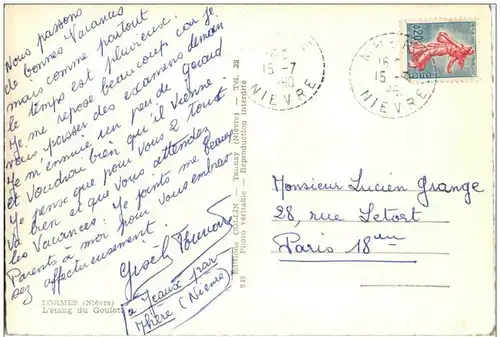 Nous passons
de bonnes Vacances
mais comme partout
le temps est pluvieux.
Je me repose beaucoup car je
vais passer des examens demain
Je m'ennuie un peu de Gérard
et Voudrais bien qu'il Vienne.
Je pense que pour Vous 2 tout
Va bien et que Vous attendez
les Vacances. Je joints me beaux
Parents a moi pour Vous embras
sez affectueusement.
Gisèl
a Jeaux par
Lhère (Nièvre)
LORMES (Nièvre)
L'étang du Goulot
9 48 Editions COLLIN — Tannay (Nièvre) — Tél. 39
Photo véritable - Reproduction interdite
15-7
NIEVRE
15
NIEVRE
0,20
POSTES
Monsieur Lucien Grange
28, rue Letort
Paris 18ème